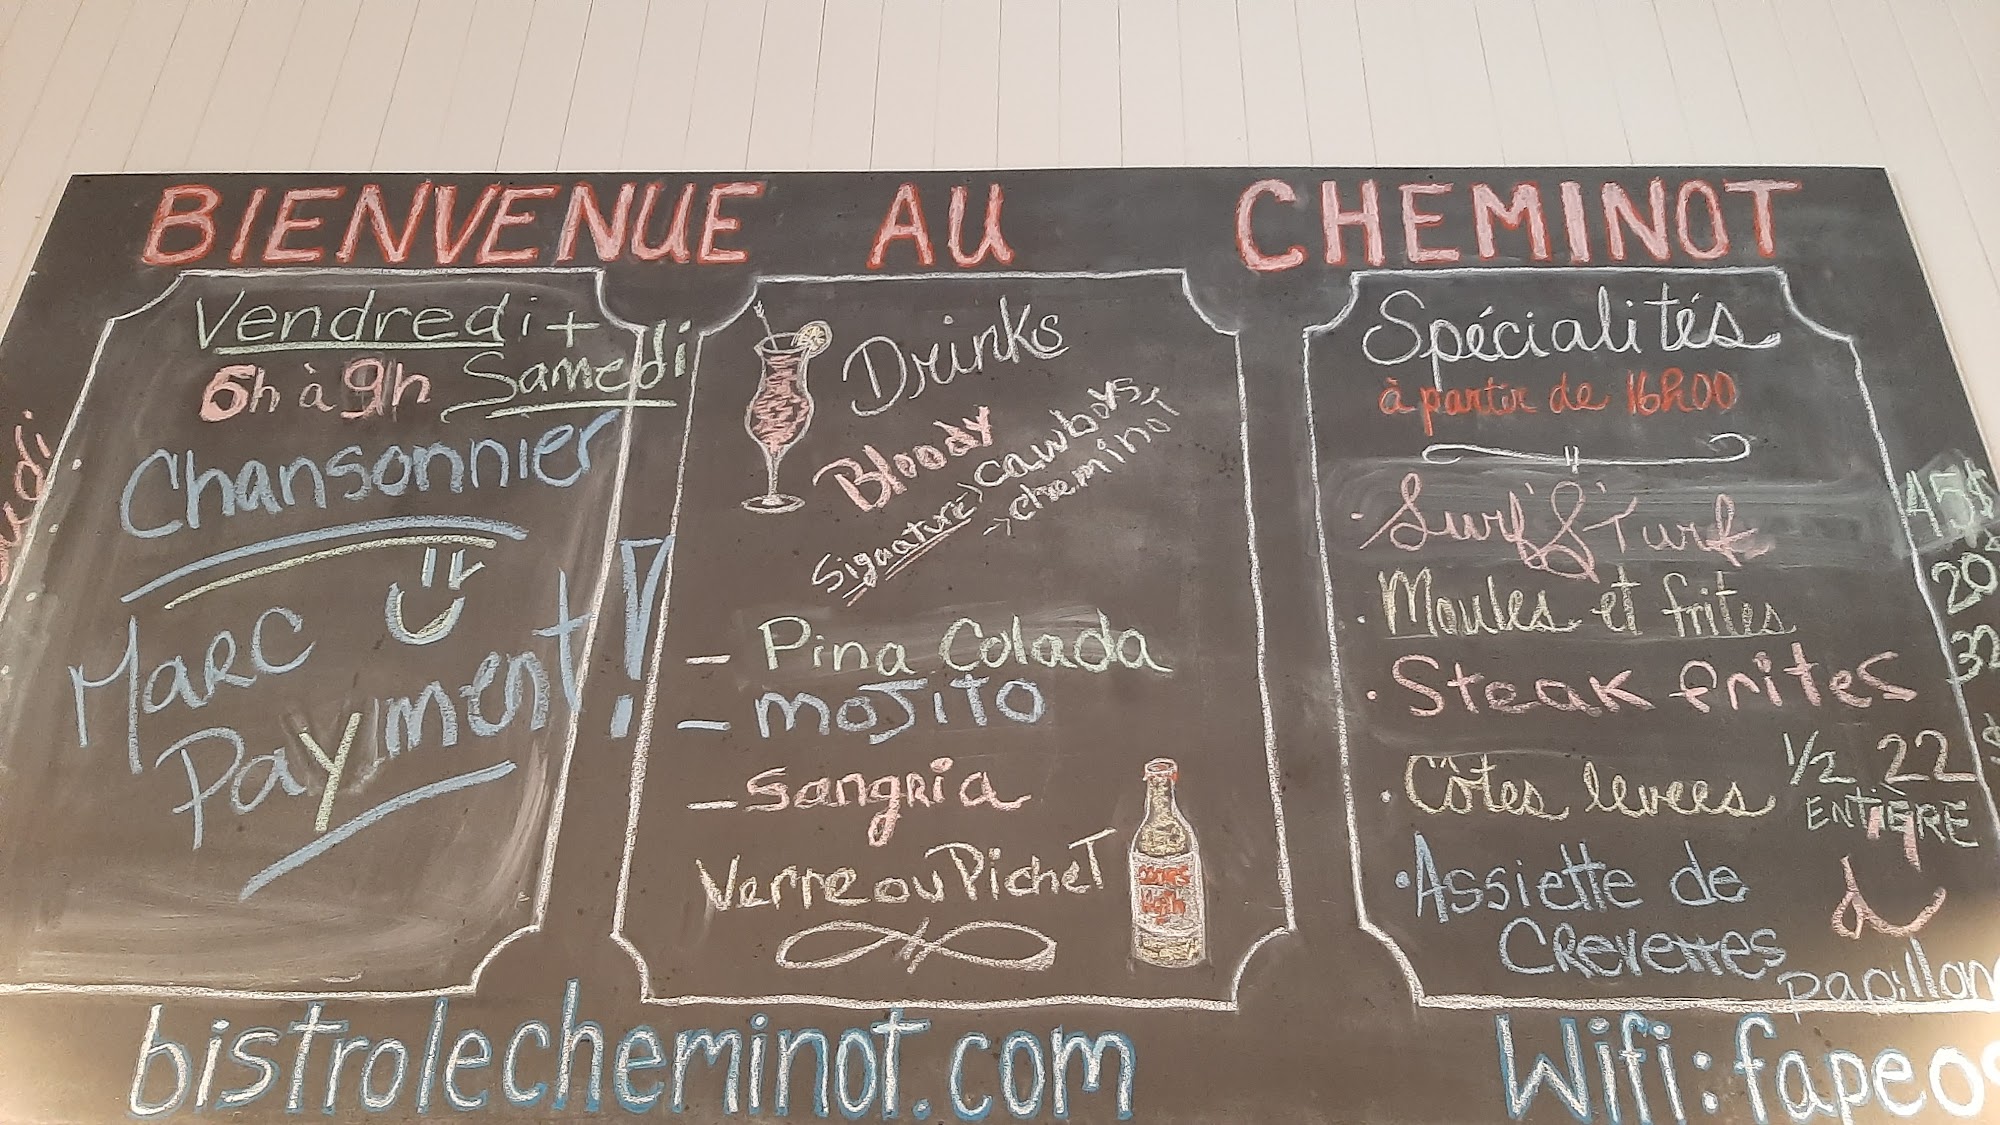 BIENVENUE AU CHEMINOT
Vendredi +
Samedi
6h à 9h
Chansonnier
Marc
Payment!
Drinks
Bloody
Signature → cawboys,
→ cheminot
- Pina Colada
- Mojito
- Sangria
Verre ou Pichet
Spécialités
à partir de 16h00
• Surf 'S' Turf 45$
• Moules et frites 20$
• Steak frites 32
• Côtes levees 1/2 22
ENTIÈRE
• Assiette de
Crevettes
papillon
bistrolecheminot.com
Wifi: fapeo